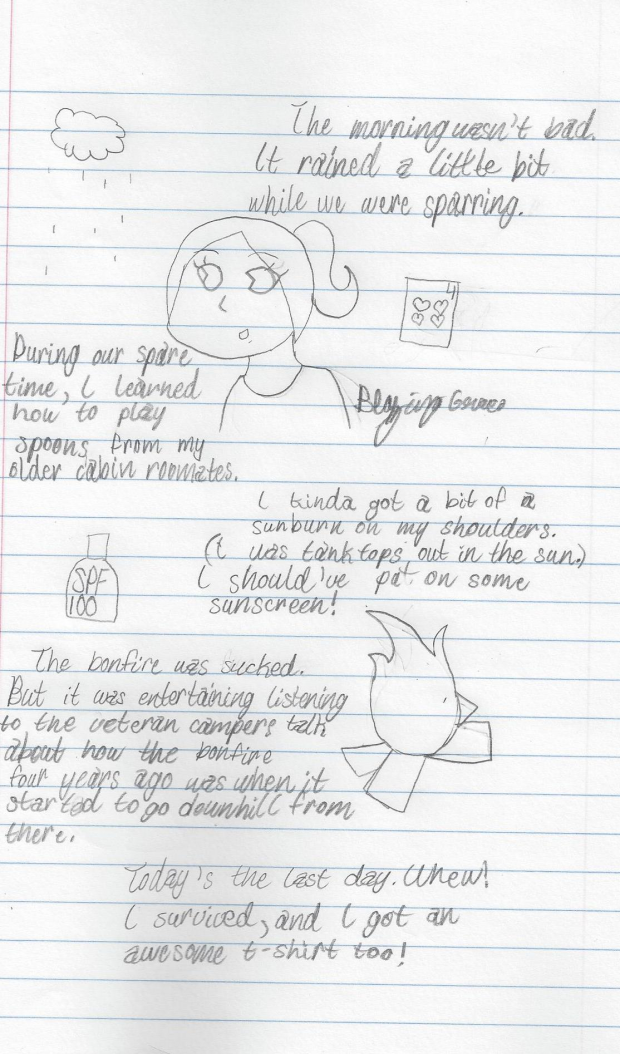 The morning wasn't bad.
It rained a little bit
while we were sparring.
4
During our spare
time, I learned
how to play
spoons from my
older cabin roomates.
I kinda got a bit of a
sunburn on my shoulders.
(I was tank tops out in the sun.)
I should've put on some
sunscreen!
SPF
100
The bonfire was sucked.
But it was entertaining listening
to the veteran campers talk
about how the bonfire
four years ago was when it
started to go downhill from
there.
Today's the last day. Whew!
I survived, and I got an
awesome t-shirt too!